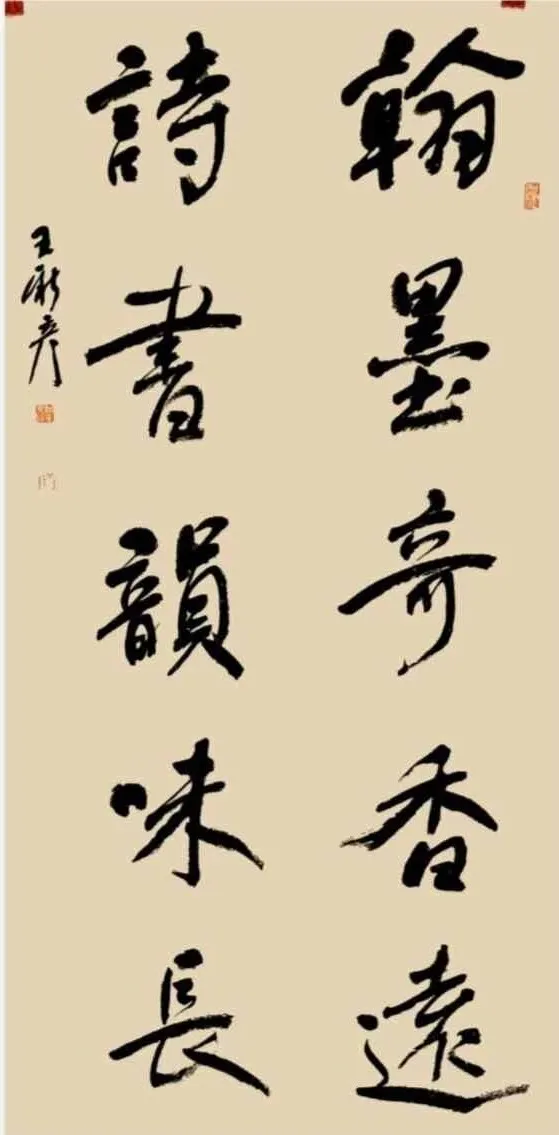 翰墨奇香遠
詩書韻味長
王新彦